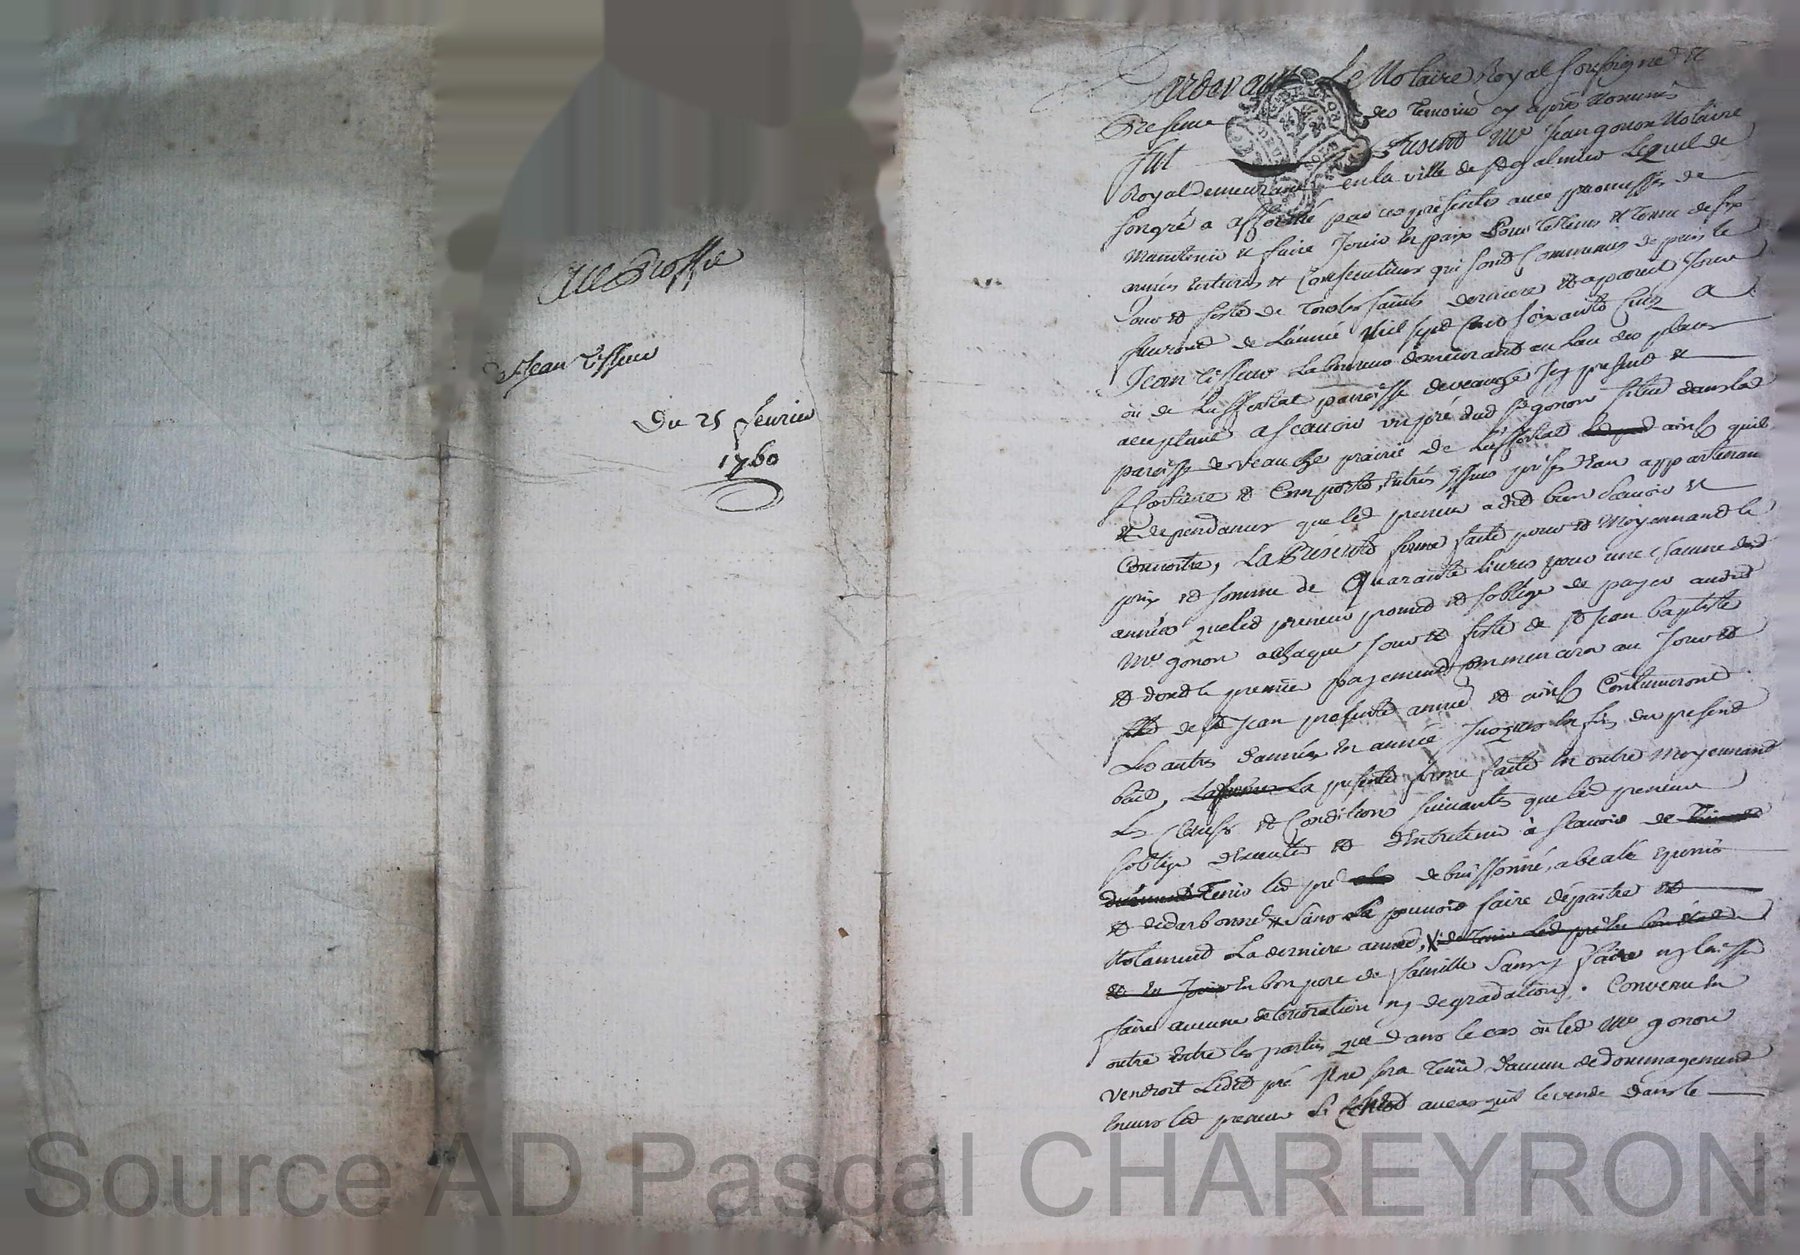 Jean tisseur
Du 25 fevrier
1760
Pardevant Le Notaire Royal soussigné et
Presence des Temoins cy apres Nommés
Fut Présent Me Jean gonon Notaire
Royal Demeurant en la ville de st galmier Lequel de
son gré a affermé par ces présentes avec promesse de
Maintenir et faire Jouir en paix Pour le tems et terme de six
années entieres et Consecutives qui sont Commencés depuis le
Jour et feste de Tous les saints derniere et apareil Jour
finiront de L'année Mil sept Cent soixante Cinq A
Jean tisseur Laboureur demeurant au lieu des places
ou de Lussortal paroisse de veauche Icy present et
acceptant ascavoir un pré dud sr gonon situé dans lad
paroisse de veauche prairie de Lussortal ainsy quil
se Contient et Comporte, entrés yssues prises d'eau appartenan
et dependances que led preneur a dit bien scavoir et
Connoitre, La Présente ferme faite pour et Moyennant le
prix et somme de Quarante livres pour une chacune des
années que led preneur promet et s'oblige de payer audit
Me gonon a chaque Jour et feste de st Jean baptiste
et dont le premier payement Commencera au Jour et
feste de st Jean presente année et ainsy Continueront
Les autres d'année en année Jusques en fin du present
bail, La presente ferme faite en outre Moyennant
Les clauses et Conditions suivantes que led preneur
s'oblige d'Executer et d'Entretenir à scavoir de
Tenir led pré debuissonné,
et sans Le pouvoir faire dépaitre
Notament La derniere année,
En bon pere de famille sans y faire ny laisser
faire aucune deterioration ny degradation. Convenu en
outre entre les parties que dans le cas où led Me gonon
vendroit Ledit pré Il ne sera Tenu d'aucun dedommagement
Envers led preneur au cas quil le vende dans le
Source AD Pascal CHAREYRON